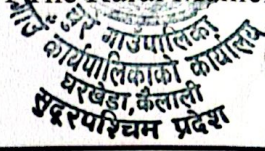 चुरे गाउँपालिका
गाउँ कार्यपालिकाको कार्यालय
घरखेडा, कैलाली
सुदूरपश्चिम प्रदेश